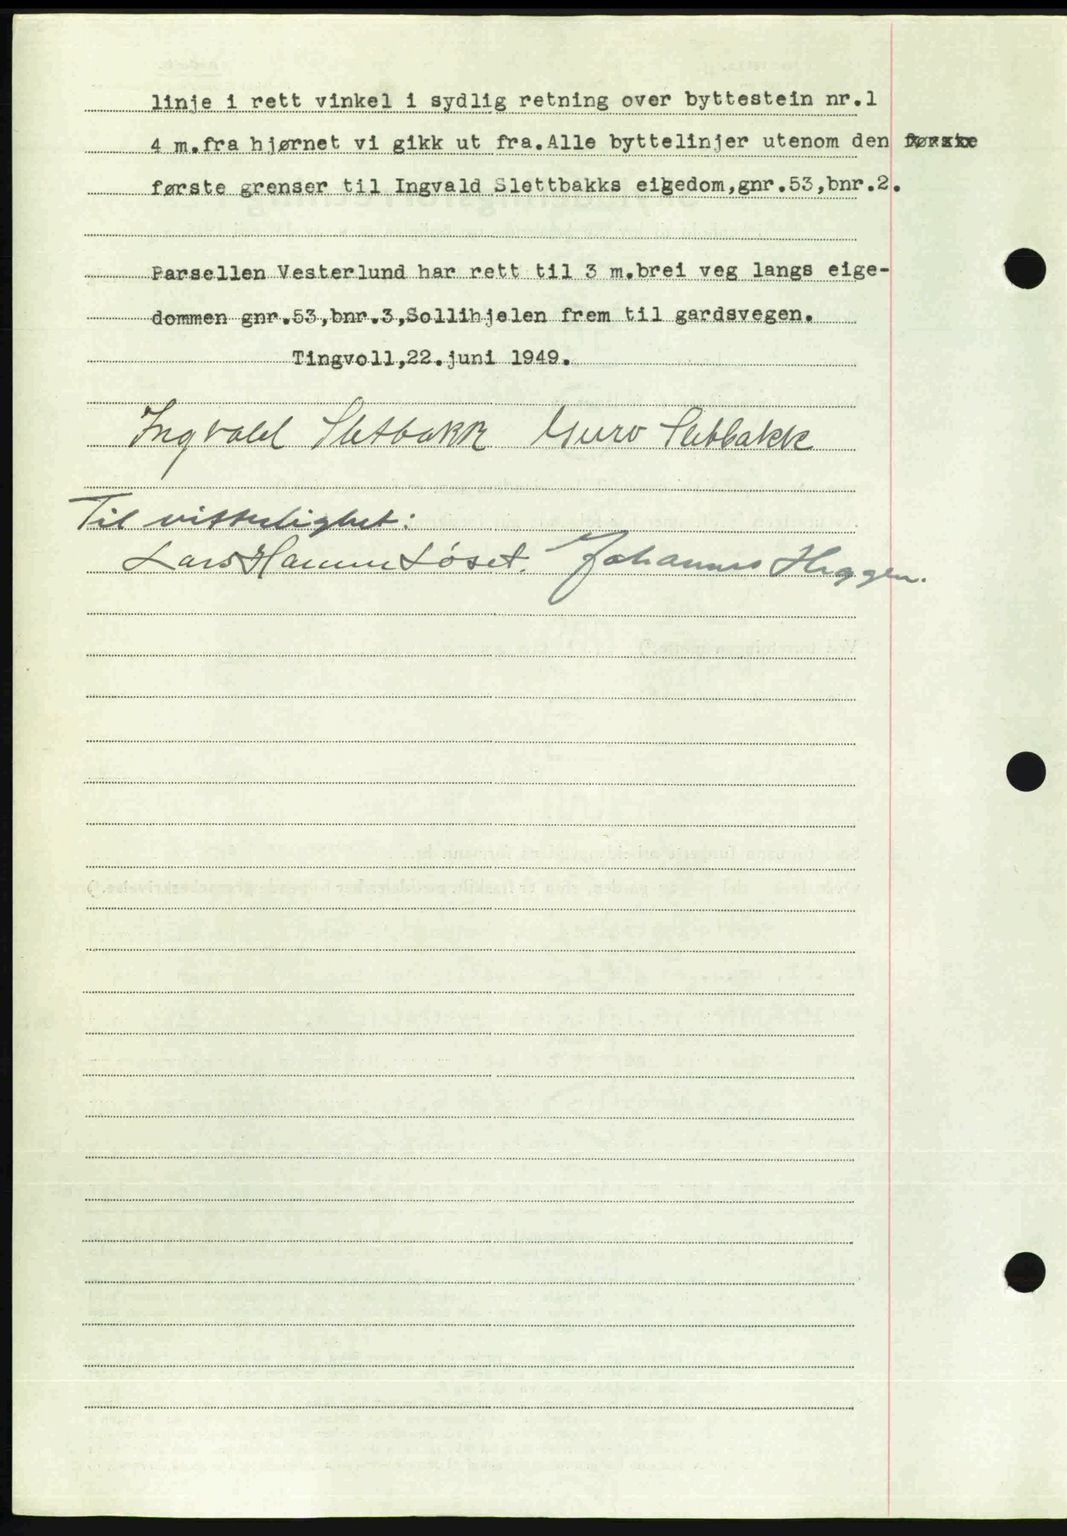 linje i rett vinkel i sydlig retning over byttestein nr.1
4 m.fra hjørnet vi gikk ut fra.Alle byttelinjer utenom den
første grenser til Ingvald Slettbakks eigedom,gnr.53,bnr.2.
Parsellen Vesterlund har rett til 3 m.brei veg langs eige-
dommen gnr.53,bnr.3,Sollihjelen frem til gardsvegen.
Tingvoll,22.juni 1949.
Ingvald Sletbakk Guro Sletbakk
Til vitterlighet:
Lars Hamre Løset. Johannes Heggen.